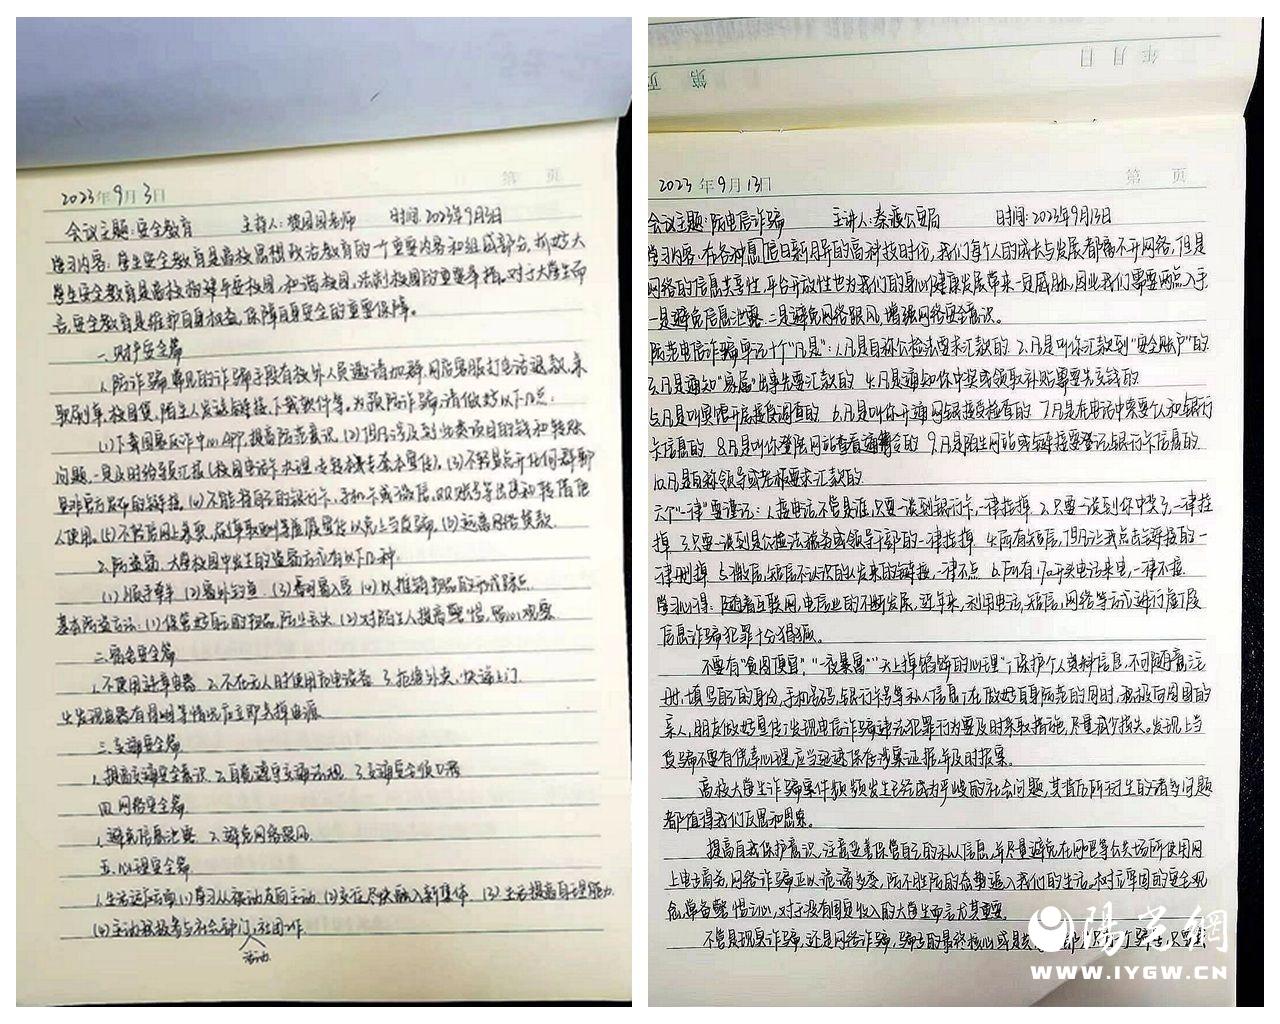 第 页
2023年9月3日
会议主题:安全教育 主持人:樊园园老师 时间:2023年9月3日
学习内容:学生安全教育是高校思想政治教育的一个重要内容和组成部分,抓好大
学生安全教育是高校构建平安校园,和谐校园,法制校园的重要举措。对于大学生而
言,安全教育是维护自身权益,保障自身安全的重要保障。
一.财产安全篇
1.防诈骗.常见的诈骗手段有校外人员邀请加群.网店客服打电话退款.兼
职刷单.校园贷.陌生人发送链接.下载软件等。为预防诈骗,请做好以下几点:
(1)下载国家反诈中心APP,提高防范意识.(2)但凡涉及到此类项目的钱和转账
问题,一定及时给导员汇报
是非官方发布的链接 (4)不能将自己的银行卡,手机卡或微信,QQ账号等出售和转借他
人使用。(5)不轻信网上兼职,以免上当受骗.(6)远离网络贷款.
2.防盗窃.大学校园中发生的盗窃方式有以下几种.
(1)顺手牵羊 (2)窗外钓鱼 (3)翻窗入室 (4)以推销物品的形式踩点.
基本防盗方法:(1)保管好自己的物品,防止丢失.(2)对陌生人提高警惕,留心观察.
二.宿舍安全篇
1.不使用违章电器 2.不在无人时使用充电设备 3.拒绝外卖、快递上门.
4.发现电器有冒烟等情况后立即关掉电源.
三.交通安全篇
1.提高交通安全意识 2.自觉遵守交通法规 3.交通安全须切记
四.网络安全篇
1.避免信息泄露 2.避免网络跟风.
五.心理安全篇
1.生活适应方面(1)学习从被动变为主动.(2)交往尽快融入新集体.(3)生活提高自理能力.
(4)主动积极参与社会部门,社团工作.
活动.
年 月 日
第 页
第 页
2023年9月13日
会议主题:防电信诈骗 主讲人:秦渡公安局 时间:2023年9月13日
学习内容:在各种愿日新月异的高科技时代,我们每个人的成长与发展都离不开网络,但是
网络的信息共享性,平台开放性也为我们的身心健康发展带来一定威胁,因此我们需要两点入手.
一是避免信息泄露.二是避免网络跟风,增强网络安全意识。
防范电信诈骗牢记十个"凡是":1.凡是自称公检法要求汇款的 2.凡是叫你汇款到"安全账户"的
3.凡是通知"家属"出事先要汇款的 4.凡是通知你中奖或领取补贴需要先交钱的
6.凡是叫你开通网银接受检查的 7.凡是在电话中索要个人和银行
卡信息的 8.凡是叫你登陆网站查看通缉令的 9.凡是陌生网站或链接要登记银行卡信息的
10.凡是自称领导或老板要求汇款的
六个"一律"要谨记:1.接电话不管是谁,只要一谈到银行卡,一律挂掉 2.只要一谈到你中奖了,一律挂
掉 3.只要一谈到是公检法税务或领导干部的一律挂掉 4.所有短信,但凡让我点击链接的一
律删掉 5.微信,短信不认识的人发来的链接,一律不点 6.所有170开头电话来电,一律不接.
学习心得:随着互联网,电信业的不断发展,近年来,利用电话,短信,网络等方式进行虚假
信息诈骗犯罪十分猖狂。
不要有"贪图便宜","一夜暴富""天上掉馅饼的心理";保护个人资料信息,不可随意注
册,填写自己的身份,手机号码,银行卡号等私人信息;在做好自身防范的同时,积极向周围的
亲人,朋友做好宣传;发现电信诈骗违法犯罪行为要及时采取措施,尽量减少损失,发现上当
受骗不要有侥幸心理,应当迅速保存涉案证据,并及时报案。
高校大学生诈骗案件频频发生已经成为严峻的社会问题,其背后所衍生的诸多问题
都值得我们反思和思索。
提高自我保护意识,注意妥善保管自己的私人信息,并尽量避免在网吧等公共场所使用网
上电子商务,网络诈骗正以诡谲多变,防不胜防的态势逼入我们的生活,树立牢固的安全观
念,常备警惕之心,对于没有固定收入的大学生而言尤其重要。
不管是现实诈骗,还是网络诈骗,骗子的最终核心
陽光網
WWW.IYGW.CN